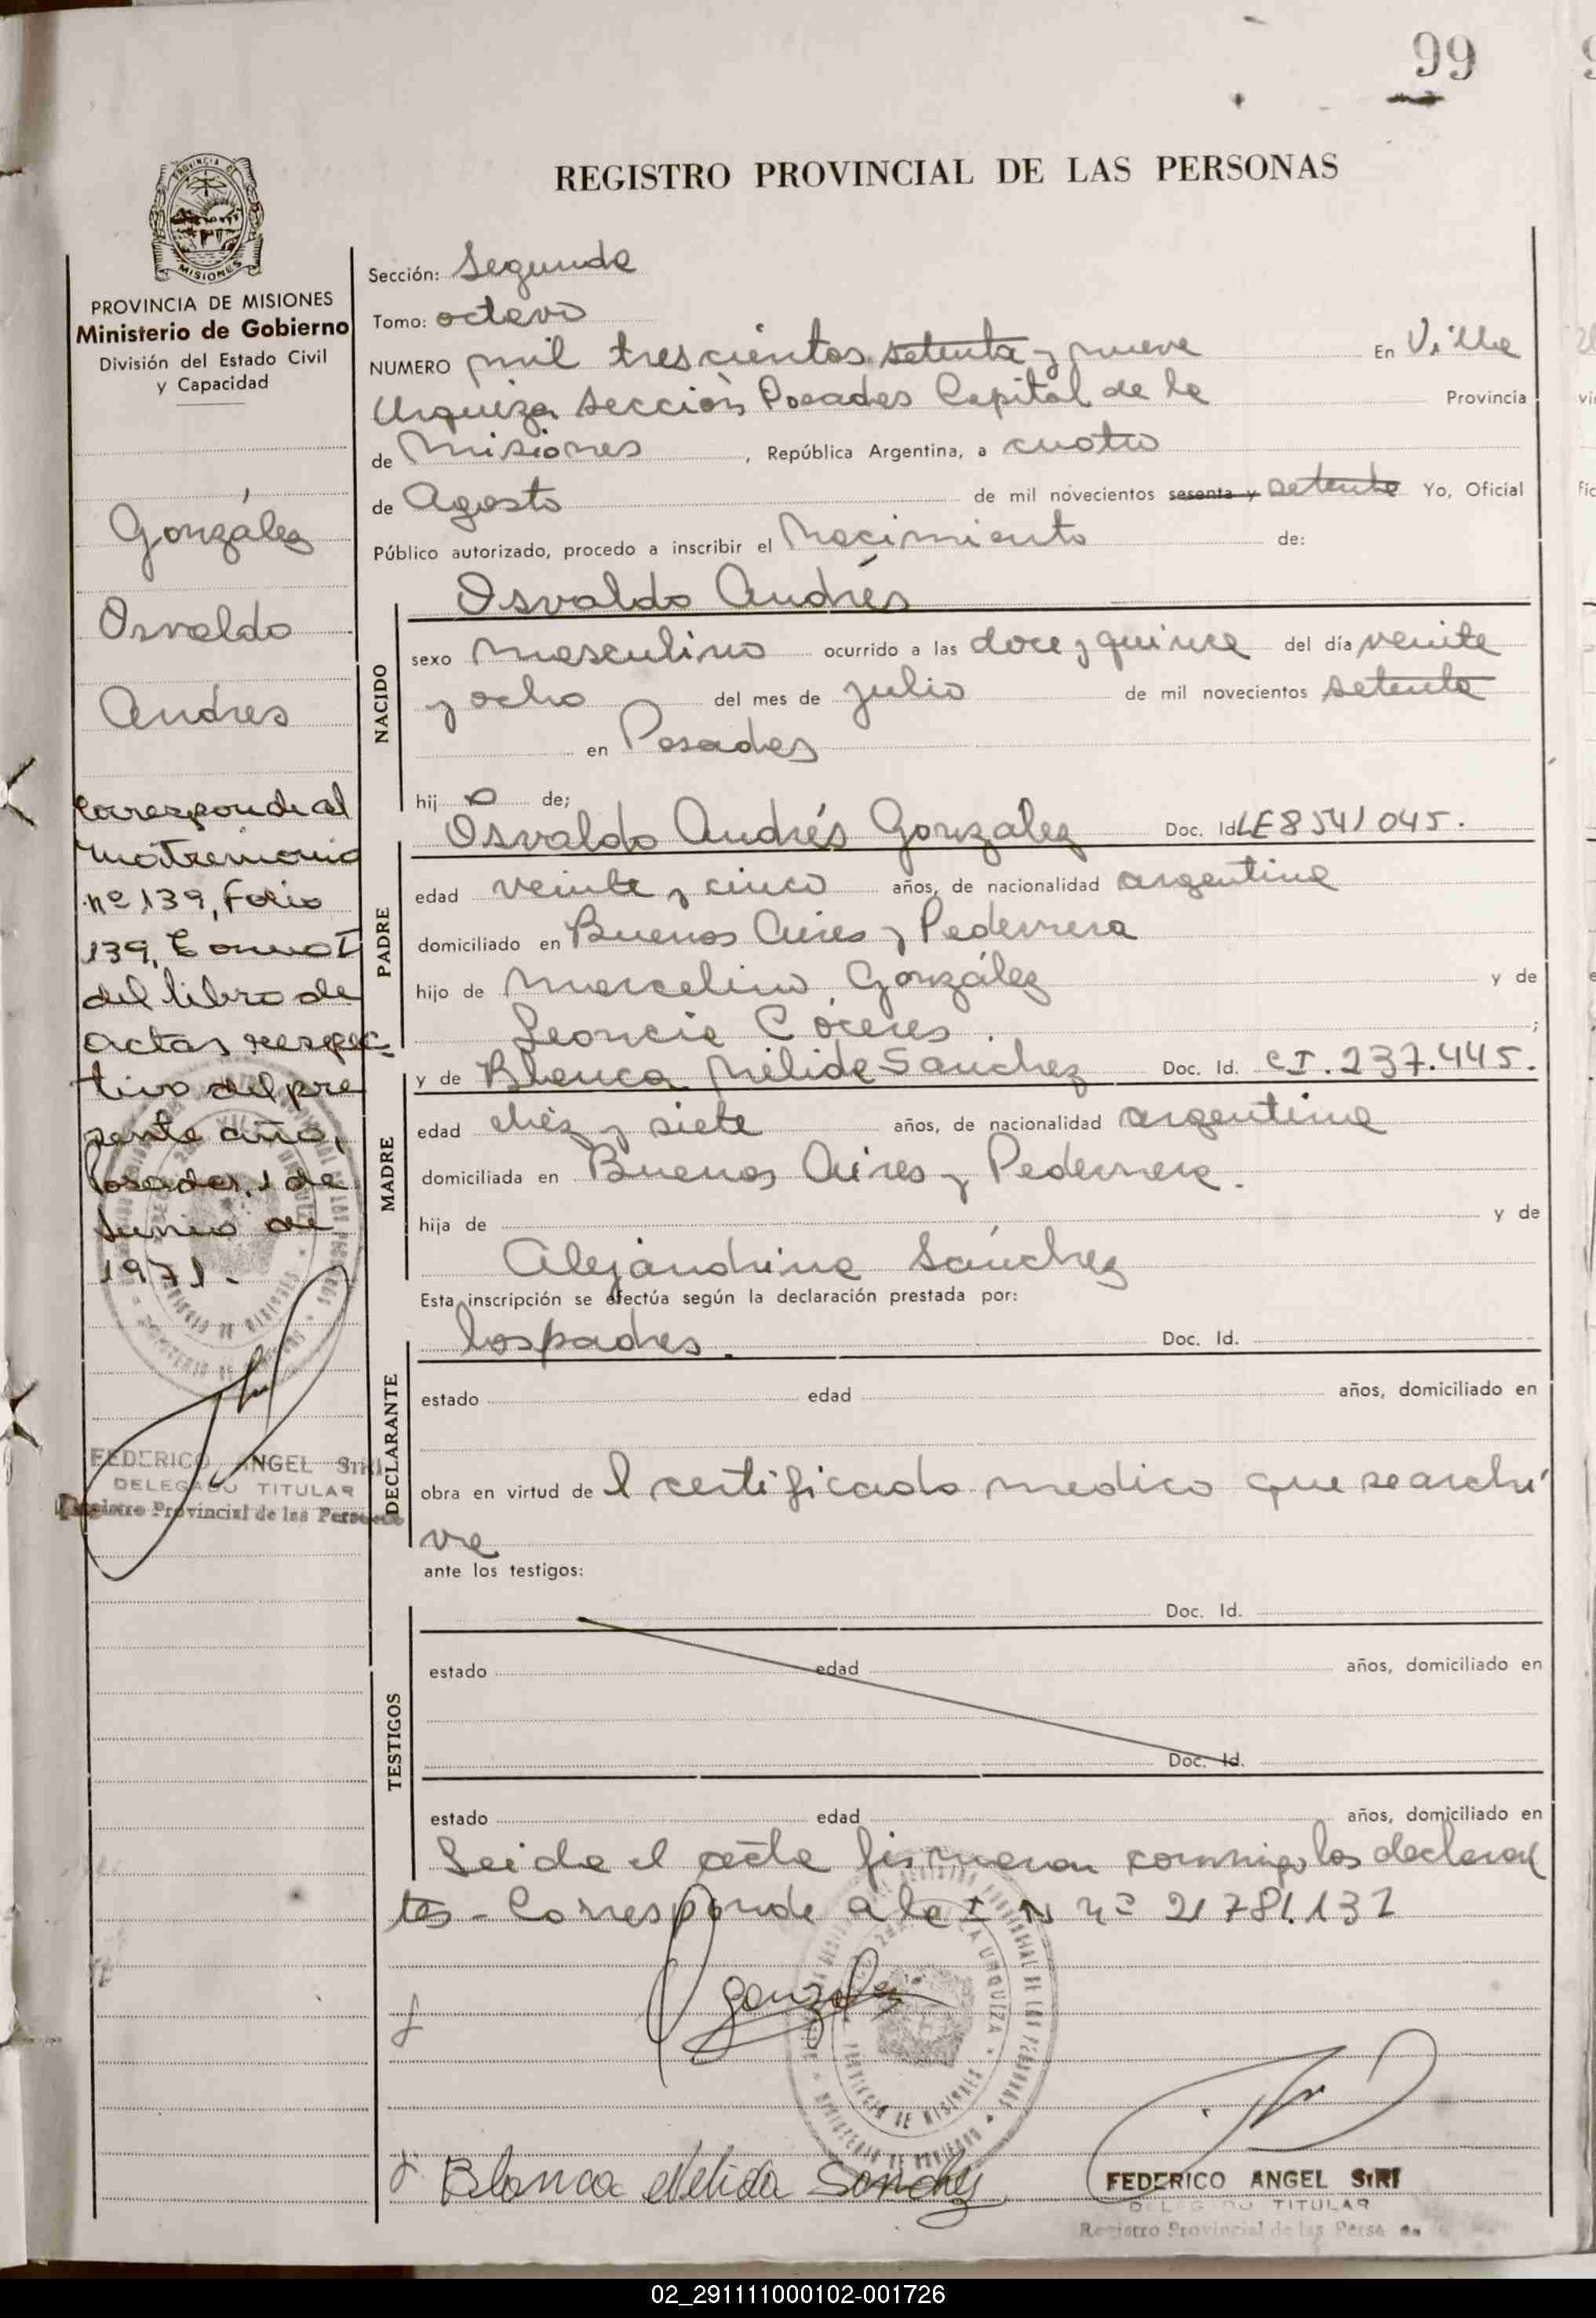 99
REGISTRO PROVINCIAL DE LAS PERSONAS
PROVINCIA DE
MISIONES
PROVINCIA DE MISIONES
Ministerio de Gobierno
División del Estado Civil
y Capacidad
González
Osvaldo
Andres
Corresponde al
matremonio
nº 139, Folio
139, Tomo I
del libro de
actas respec
tivo del pre
sente año,
Posadas, 1 de
Junio de
1971.
FEDERICO ANGEL SIRI
DELEGADO TITULAR
Registro Provincial de las Personas
Sección: Segunda
Tomo: octavo
NUMERO mil trescientos setenta y nueve En Villa
Urquiza Sección Posadas Capital de la Provincia
de Misiones, República Argentina, a cuatro
de Agosto de mil novecientos sesenta y setenta Yo, Oficial
Público autorizado, procedo a inscribir el Nacimiento de:
Osvaldo Andrés
NACIDO
sexo masculino ocurrido a las doce y quince del día veinte
y ocho del mes de julio de mil novecientos setenta
en Posadas
hij o de;
Osvaldo Andrés González Doc. Id. LE 8541045.
PADRE
edad veinte y cinco años, de nacionalidad argentina
domiciliado en Buenos Aires y Pedernera
hijo de Marcelino González y de
Leoncia Cáceres ;
y de Blanca Nélida Sanchez Doc. Id. CI. 237.445.
MADRE
edad diez y siete años, de nacionalidad argentina
domiciliada en Buenos Aires y Pedernera.
hija de y de
Alejandrina Sánchez
Esta inscripción se efectúa según la declaración prestada por:
los padres. Doc. Id.
DECLARANTE
estado edad años, domiciliado en
obra en virtud de l certificado medico que se archi
va
ante los testigos:
TESTIGOS
Doc. Id.
estado edad años, domiciliado en
Doc. Id.
estado edad años, domiciliado en
Leida el acta firmaron conmigo los declaran
tes - Corresponde a la I N nº 21781.131
González
Blanca Nelida Sanchez
FEDERICO ANGEL SIRI
DELEGADO TITULAR
Registro Provincial de las Personas
02_291111000102-001726